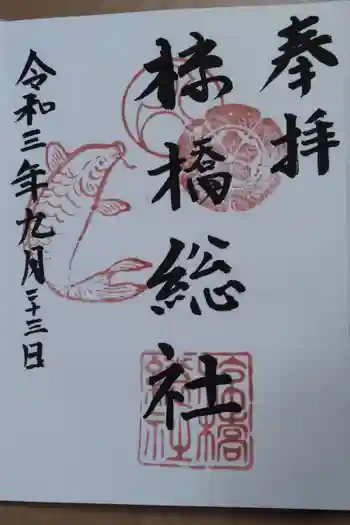 奉拝
椋橋総社
令和三年九月二十三日